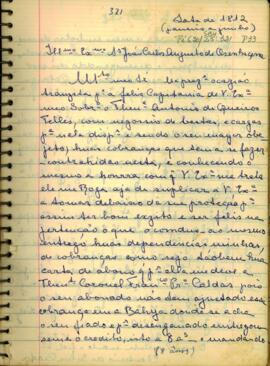 321
Data de 1812
(janeiro a junho)
Illmo Exmo Snr José Carlos Augusto de Oeynhausen
Mto me sê ocazião
tranzita pa a feliz Capitania de V. Exa
meo Sobro o Thente Antonio de Queiros
Telles, com negossio de bestas, e cargas
pa nela dispor e sendo o seu major obje
jeto, huas cobranças que tem a fazer
contrahidas nesta, e conhecendo o
mesmo a honra com q V. Exa me trata
ele me Roga aja de suplicar a V. Exa
a tomar debaixo de sua proteção pa
assim ter bom exzito e ser feliz na
pertenção a que o conduz, ao mesmo
entrego huas dependencias minhas,
de cobranças como seja tãobem hua
carta de abono q pa alla me deve o
Thente Coronel Caldas, pois
o seo abonado nas tem ajustado sua
cobrança em a Bahya donde se acha
o seu fiado pa dezenganado entregou
seme o credito, isto a 8 as e mandando
(8 anos)